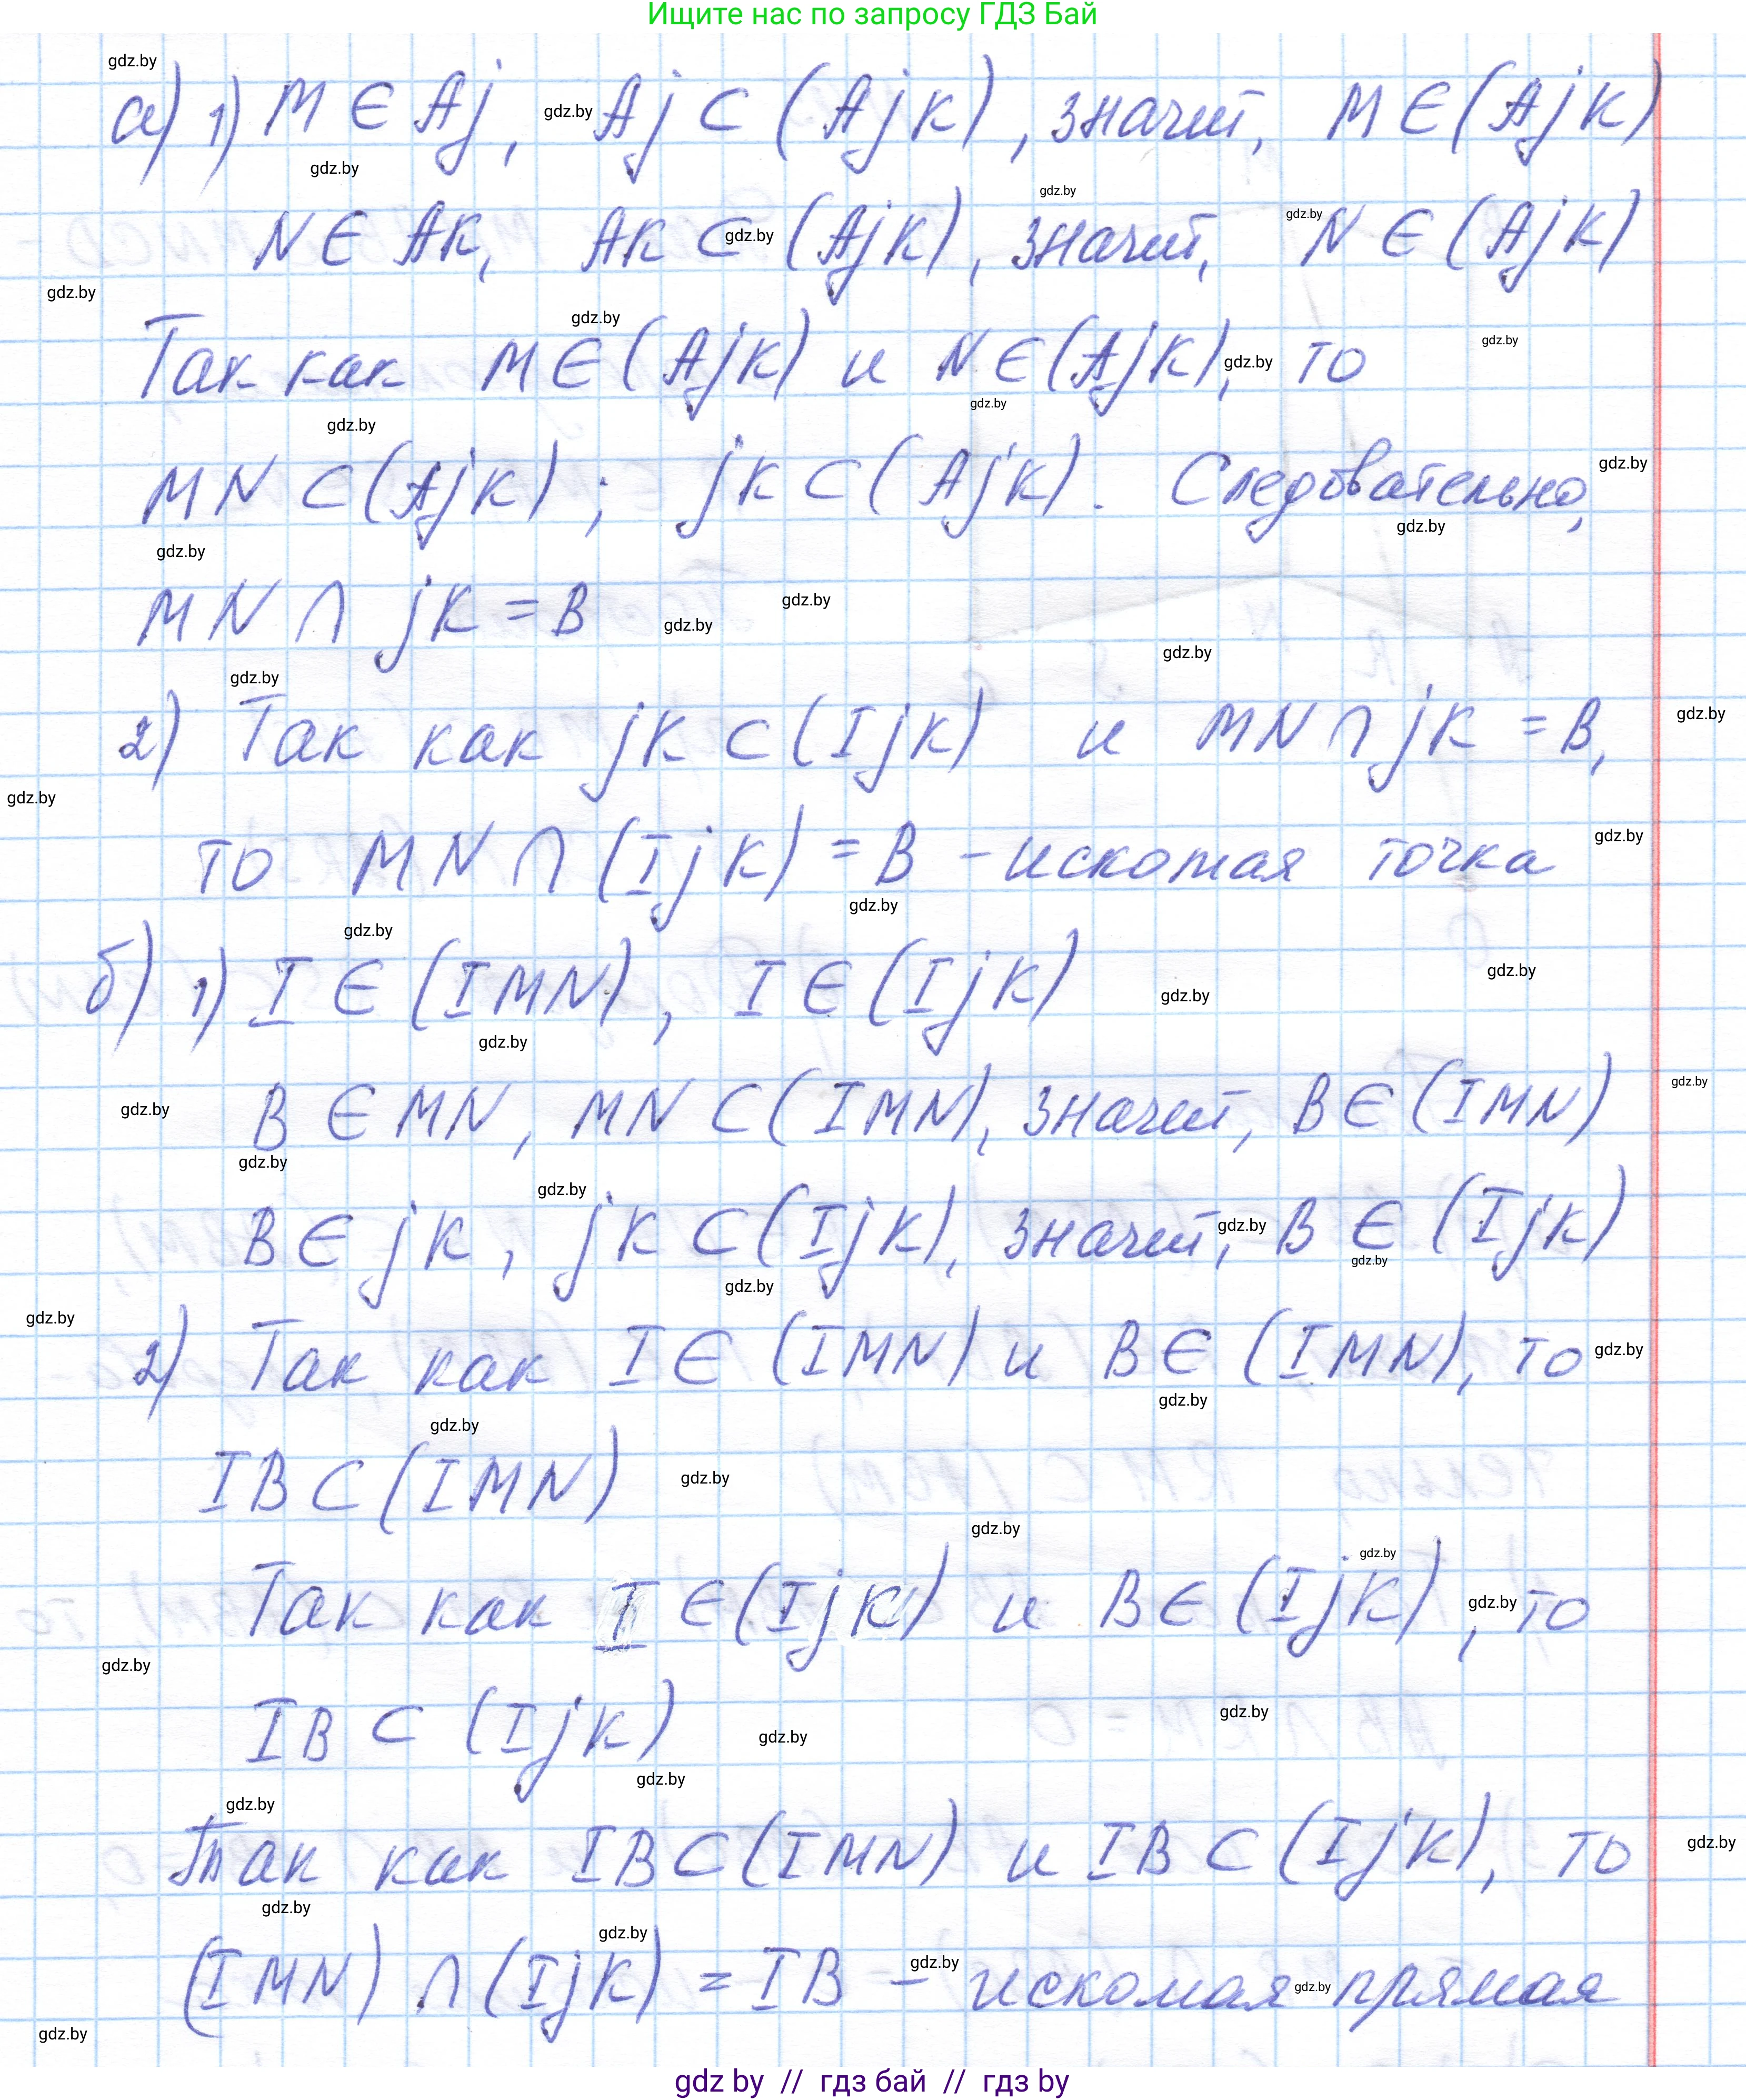 Ищите нас по запросу ГДЗ Бай
а) 1) M ∈ Aj, Aj ⊂ (AjK), значит, M ∈ (AjK)
N ∈ AK, AK ⊂ (AjK), значит, N ∈ (AjK)
Так как M ∈ (AjK) и N ∈ (AjK), то
MN ⊂ (AjK); jK ⊂ (AjK). Следовательно,
MN ∩ jK = B
2) Так как jK ⊂ (IjK) и MN ∩ jK = B,
то MN ∩ (IjK) = B - искомая точка
б) 1) I ∈ (IMN), I ∈ (IjK)
B ∈ MN, MN ⊂ (IMN), значит, B ∈ (IMN)
B ∈ jK, jK ⊂ (IjK), значит, B ∈ (IjK)
2) Так как I ∈ (IMN) и B ∈ (IMN), то
IB ⊂ (IMN)
Так как I ∈ (IjK) и B ∈ (IjK), то
IB ⊂ (IjK)
Так как IB ⊂ (IMN) и IB ⊂ (IjK), то
(IMN) ∩ (IjK) = IB - искомая прямая
gdz by // гдз бай // гдз by